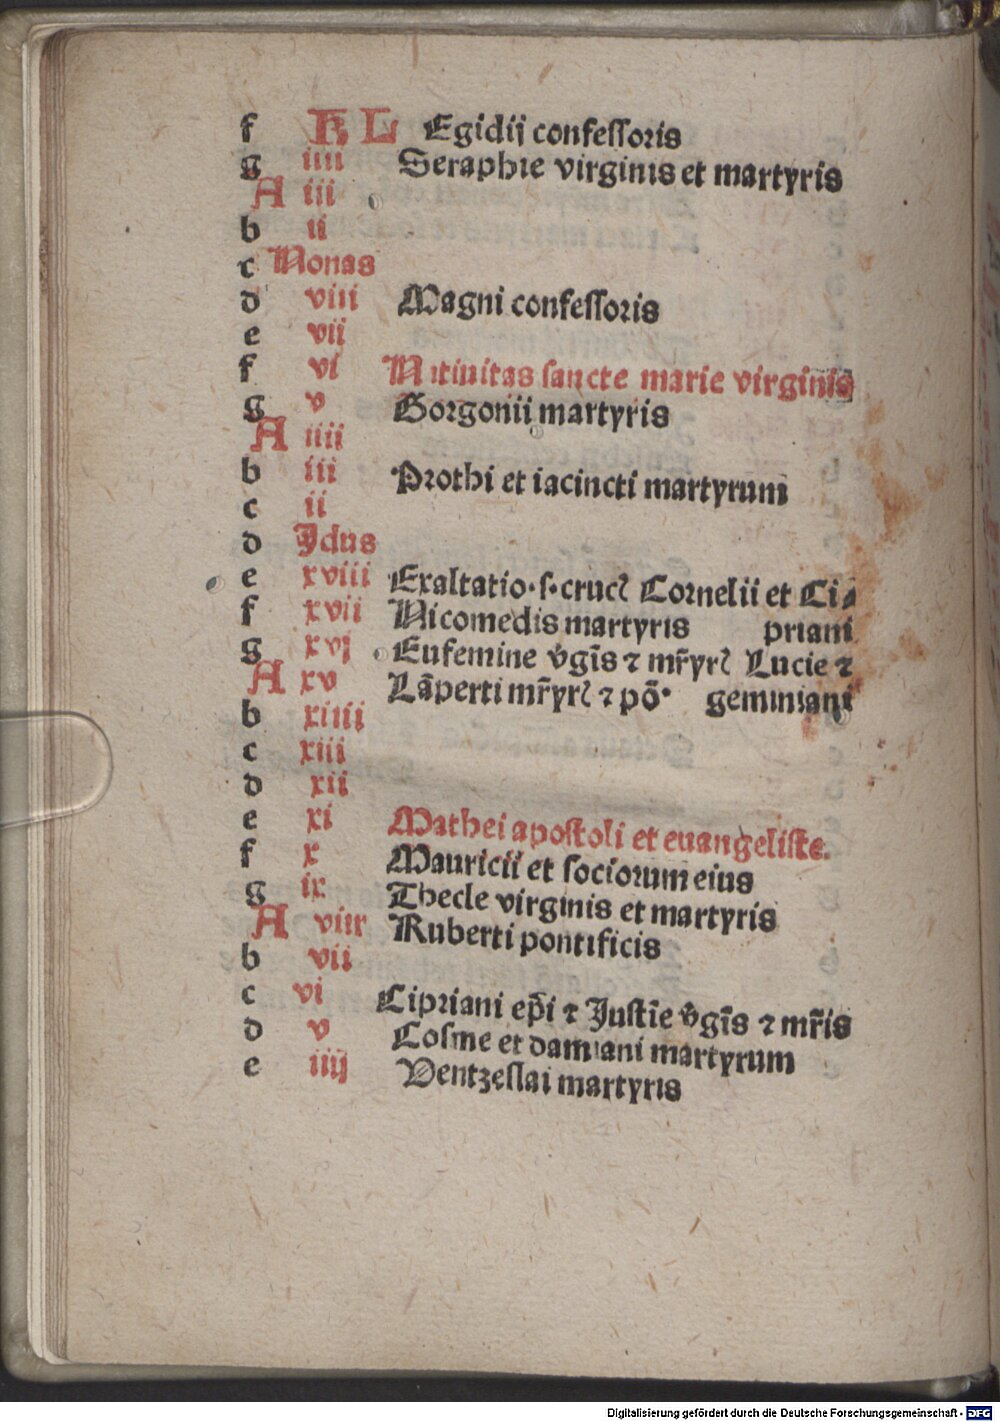 f KL Egidij confessoris
g iiii Seraphie virginis et martyris
A iii
b ii
c Nonas
d viii Magni confessoris
e vii
f vi Natiuitas sancte marie virginis
g v Gorgonii martyris
A iiii
b iii Prothi et iacincti martyrum
c ii
d Jdus
e xviii Exaltatio·s·crucꝭ Cornelii et Ci⸗
f xvii Nicomedis martyris priani
g xvj Eufemine v̓gīs ⁊ mr̄yrꝭ Lucie ⁊
A xv Lāperti mr̄yrꝭ ⁊ pō· geminiani
b xiiii
c xiii
d xii
e xi Mathei apostoli et euangeliste.
f x Mauricii et sociorum eius
g ix Thecle virginis et martyris
A viii Ruberti pontificis
b vii
c vi Cipriani ep̄i ⁊ Justīe v̓gīs ⁊ mr̄is
d v Cosme et damiani martyrum
e iiij Ventzeslai martyris
Digitalisierung gefördert durch die Deutsche Forschungsgemeinschaft - DFG